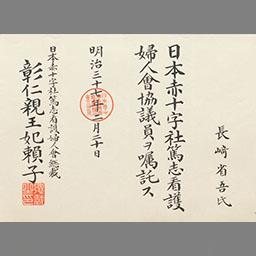 長崎省吾氏
日本赤十字社篤志看護
婦人會協議員ヲ嘱託ス
明治三十七年二月二十日
日本赤十字社篤志看護婦人會総裁
彰仁親王妃頼子